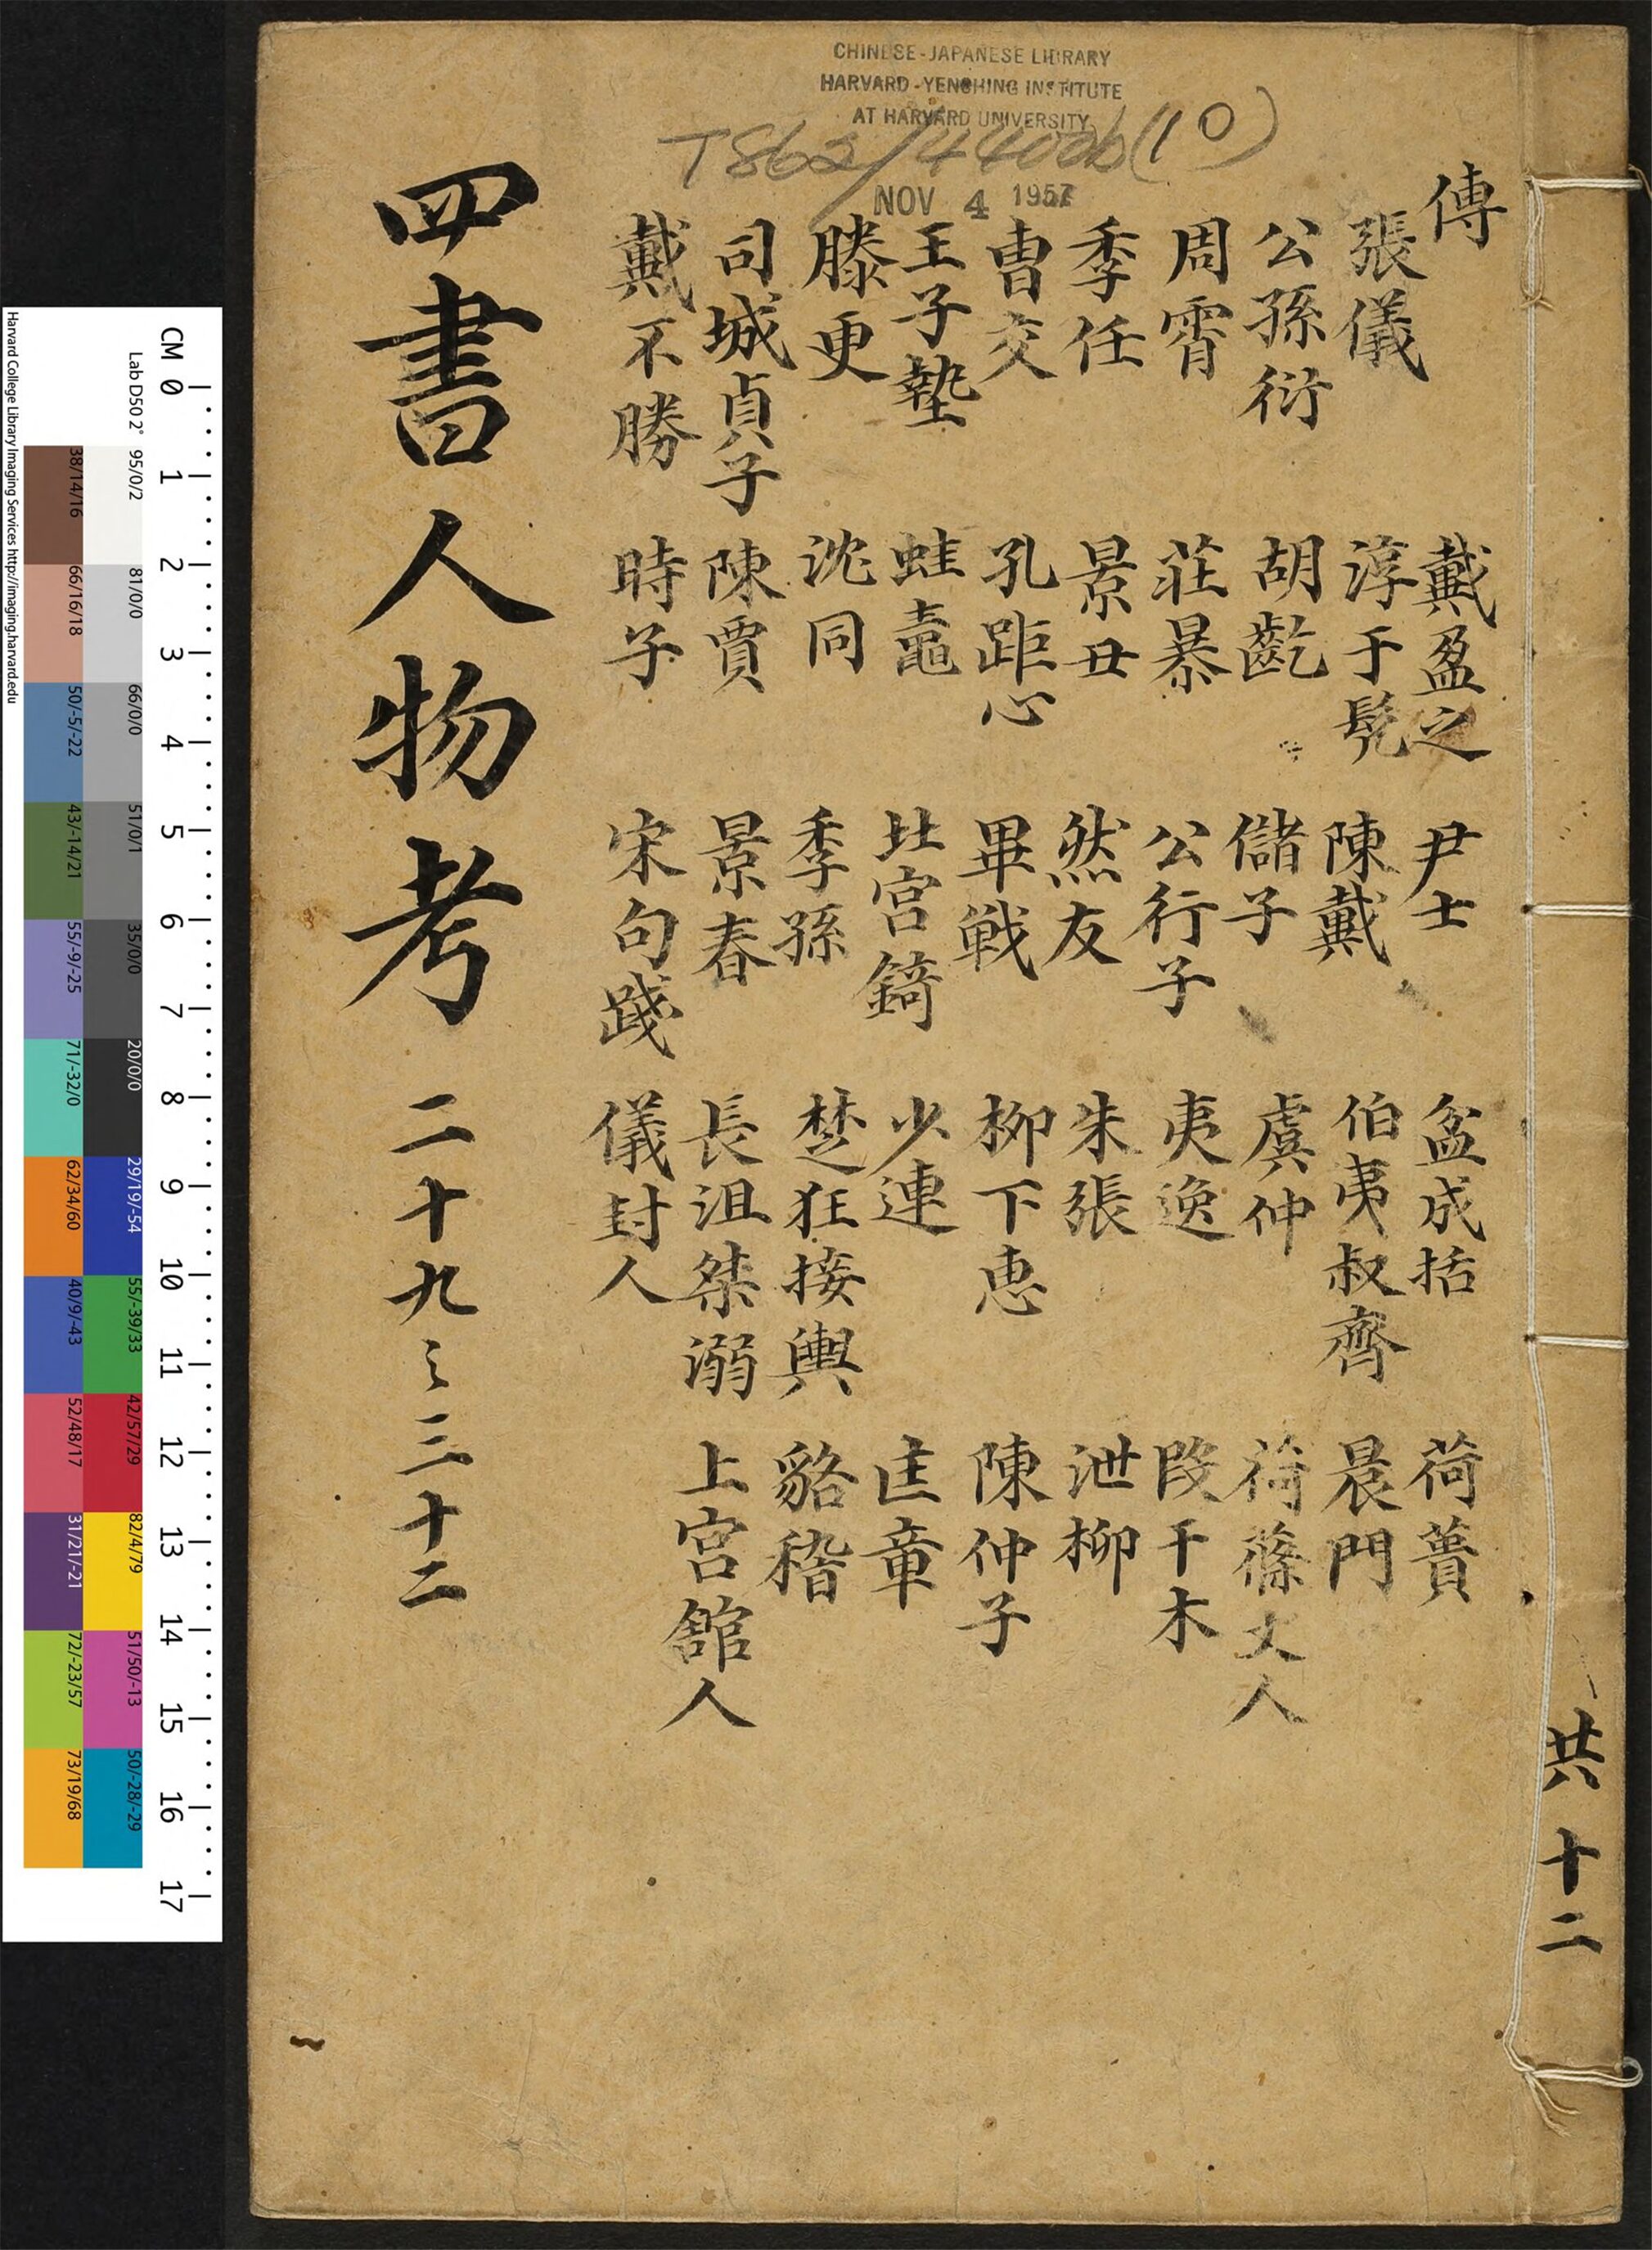 CHINESE-JAPANESE LIBRARY
HARVARD-YENCHING INSTITUTE
AT HARVARD UNIVERSITY
NOV 4 1957
傳
張儀
公孫衍
周霄
季任
曹交
王子墊
滕更
司城貞子
戴不勝
戴盈之
淳于髡
胡齕
荘暴
景丑
孔距心
蛙鼃
沈同
陳賈
時子
尹士
陳戴
儲子
公行子
然友
畢戦
北宮錡
季孫
景春
宋句踐
盆成括
伯夷叔齊
虞仲
夷逸
朱張
柳下恵
少連
椘狂接輿
長沮桀溺
儀封人
荷蕢
晨門
荷蓧丈人
段干木
泄柳
陳仲子
匡章
貉稽
上宮舘人
四書人物考 二十九之三十二
共十二
CM 0 1 2 3 4 5 6 7 8 9 10 11 12 13 14 15 16 17
Lab D50 2° 95/0/2 81/0/0 66/0/0 51/0/1 35/0/0 20/0/0 29/19/-54 55/-39/33 42/57/29 82/4/79 51/50/-13 50/-28/-29
38/14/16 66/16/18 50/-5/-22 43/-14/21 55/-9/-25 71/-32/0 62/34/60 40/9/-43 52/48/17 31/21/-21 72/-23/57 73/19/68
Harvard College Library Imaging Services http://imaging.harvard.edu